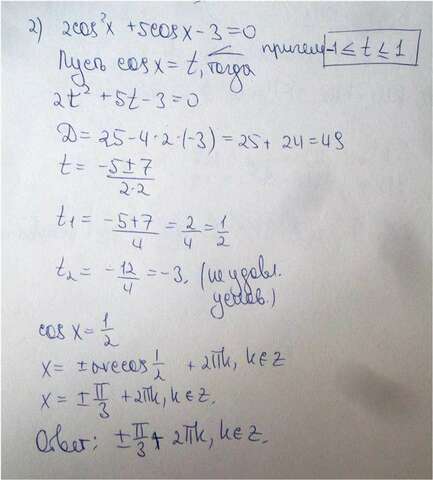 2) 2cos²x + 5cosx - 3 = 0
Пусть cos x = t, тогда причем -1 ≤ t ≤ 1
2t² + 5t - 3 = 0
D = 25 - 4·2·(-3) = 25 + 24 = 49
t = -5±7 / 2·2
t₁ = -5+7 / 4 = 2/4 = 1/2
t₂ = -12/4 = -3. (не удовл. услов.)
cos x = 1/2
x = ± arccos 1/2 + 2πk, k∈z
x = ± π/3 + 2πk, k∈z.
Ответ: ± π/3 + 2πk, k∈z.